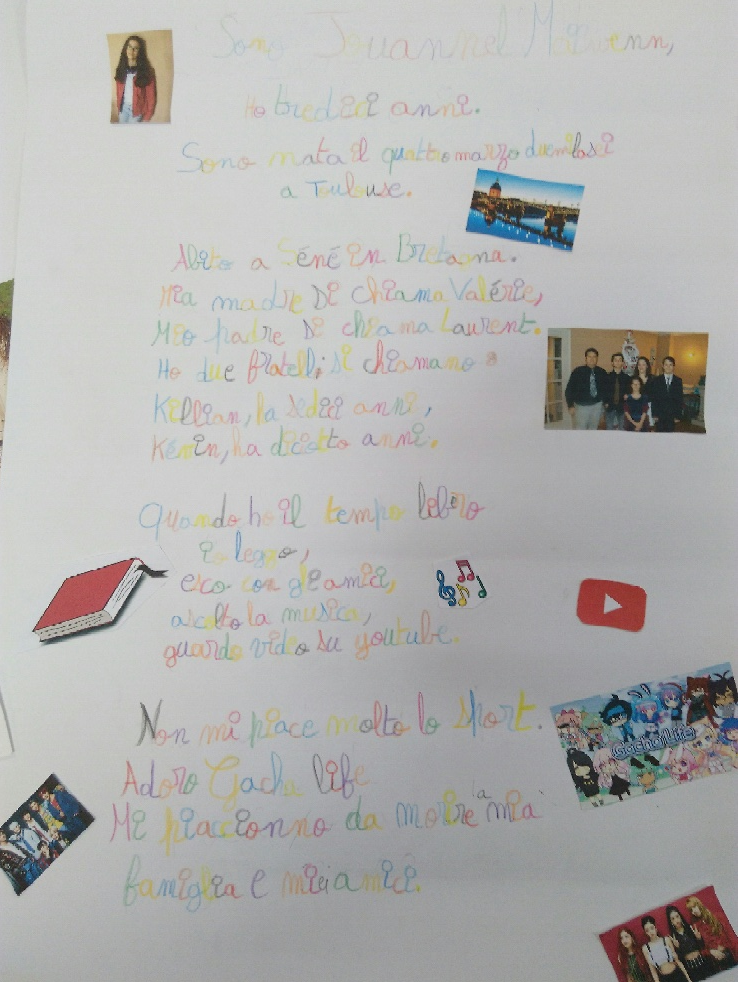 Sono Jouannel Maïwenn,
Ho tredici anni.
Sono nata il quattro marzo duemilasi
a Toulouse.
Abito a Séné in Bretagna.
Mia madre si chiama Valérie,
Mio padre si chiama Laurent.
Ho due fratelli; si chiamano :
Killian, ha sedici anni,
Kévin, ha diciotto anni.
Quando ho il tempo lebero
io leggo,
esco con gli amici,
ascolto la musica,
guardo video su youtube.
Non mi piace molto lo sport.
Adoro Gacha life
Mi piaccionno da morire la mia
famiglia e miei amici.
Gacha Life